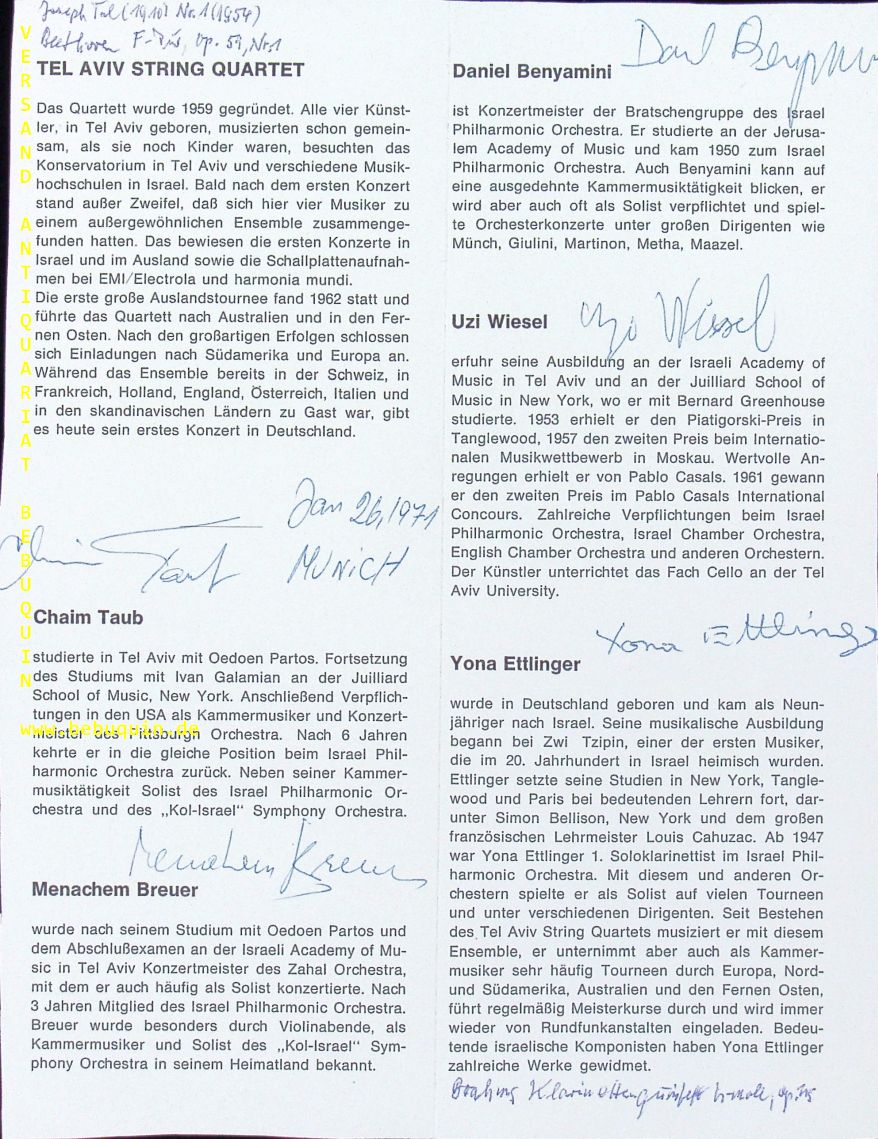 Joseph Tal (1910) Nr. 1 (1954)
Beethoven F-Dur, Op. 59, Nr. 1
TEL AVIV STRING QUARTET
Das Quartett wurde 1959 gegründet. Alle vier Künst-
ler, in Tel Aviv geboren, musizierten schon gemein-
sam, als sie noch Kinder waren, besuchten das
Konservatorium in Tel Aviv und verschiedene Musik-
hochschulen in Israel. Bald nach dem ersten Konzert
stand außer Zweifel, daß sich hier vier Musiker zu
einem außergewöhnlichen Ensemble zusammenge-
funden hatten. Das bewiesen die ersten Konzerte in
Israel und im Ausland sowie die Schallplattenaufnah-
men bei EMI/Electrola und harmonia mundi.
Die erste große Auslandstournee fand 1962 statt und
führte das Quartett nach Australien und in den Fer-
nen Osten. Nach den großartigen Erfolgen schlossen
sich Einladungen nach Südamerika und Europa an.
Während das Ensemble bereits in der Schweiz, in
Frankreich, Holland, England, Österreich, Italien und
in den skandinavischen Ländern zu Gast war, gibt
es heute sein erstes Konzert in Deutschland.
Jan 26, 1971
MUNICH
Chaim Taub
Chaim Taub
studierte in Tel Aviv mit Oedoen Partos. Fortsetzung
des Studiums mit Ivan Galamian an der Juilliard
School of Music, New York. Anschließend Verpflich-
tungen in den USA als Kammermusiker und Konzert-
meister des Pittsburgh Orchestra. Nach 6 Jahren
kehrte er in die gleiche Position beim Israel Phil-
harmonic Orchestra zurück. Neben seiner Kammer-
musiktätigkeit Solist des Israel Philharmonic Or-
chestra und des „Kol-Israel“ Symphony Orchestra.
Menachem Breuer
Menachem Breuer
wurde nach seinem Studium mit Oedoen Partos und
dem Abschlußexamen an der Israeli Academy of Mu-
sic in Tel Aviv Konzertmeister des Zahal Orchestra,
mit dem er auch häufig als Solist konzertierte. Nach
3 Jahren Mitglied des Israel Philharmonic Orchestra.
Breuer wurde besonders durch Violinabende, als
Kammermusiker und Solist des „Kol-Israel“ Sym-
phony Orchestra in seinem Heimatland bekannt.
Daniel Benyamini
ist Konzertmeister der Bratschengruppe des Israel
Philharmonic Orchestra. Er studierte an der Jerusa-
lem Academy of Music und kam 1950 zum Israel
Philharmonic Orchestra. Auch Benyamini kann auf
eine ausgedehnte Kammermusiktätigkeit blicken, er
wird aber auch oft als Solist verpflichtet und spiel-
te Orchesterkonzerte unter großen Dirigenten wie
Münch, Giulini, Martinon, Metha, Maazel.
Uzi Wiesel
Uzi Wiesel
erfuhr seine Ausbildung an der Israeli Academy of
Music in Tel Aviv und an der Juilliard School of
Music in New York, wo er mit Bernard Greenhouse
studierte. 1953 erhielt er den Piatigorski-Preis in
Tanglewood, 1957 den zweiten Preis beim Internatio-
nalen Musikwettbewerb in Moskau. Wertvolle An-
regungen erhielt er von Pablo Casals. 1961 gewann
er den zweiten Preis im Pablo Casals International
Concours. Zahlreiche Verpflichtungen beim Israel
Philharmonic Orchestra, Israel Chamber Orchestra,
English Chamber Orchestra und anderen Orchestern.
Der Künstler unterrichtet das Fach Cello an der Tel
Aviv University.
Yona Ettlinger
Yona Ettlinger
wurde in Deutschland geboren und kam als Neun-
jähriger nach Israel. Seine musikalische Ausbildung
begann bei Zwi Tzipin, einer der ersten Musiker,
die im 20. Jahrhundert in Israel heimisch wurden.
Ettlinger setzte seine Studien in New York, Tangle-
wood und Paris bei bedeutenden Lehrern fort, dar-
unter Simon Bellison, New York und dem großen
französischen Lehrmeister Louis Cahuzac. Ab 1947
war Yona Ettlinger 1. Soloklarinettist im Israel Phil-
harmonic Orchestra. Mit diesem und anderen Or-
chestern spielte er als Solist auf vielen Tourneen
und unter verschiedenen Dirigenten. Seit Bestehen
des Tel Aviv String Quartets musiziert er mit diesem
Ensemble, er unternimmt aber auch als Kammer-
musiker sehr häufig Tourneen durch Europa, Nord-
und Südamerika, Australien und den Fernen Osten,
führt regelmäßig Meisterkurse durch und wird immer
wieder von Rundfunkanstalten eingeladen. Bedeu-
tende israelische Komponisten haben Yona Ettlinger
zahlreiche Werke gewidmet.
Brahms Klarinettenquintett h-moll, op. 115
VERSAND ANTIQUARIAT BEBUQUIN
www.bebuquin.de